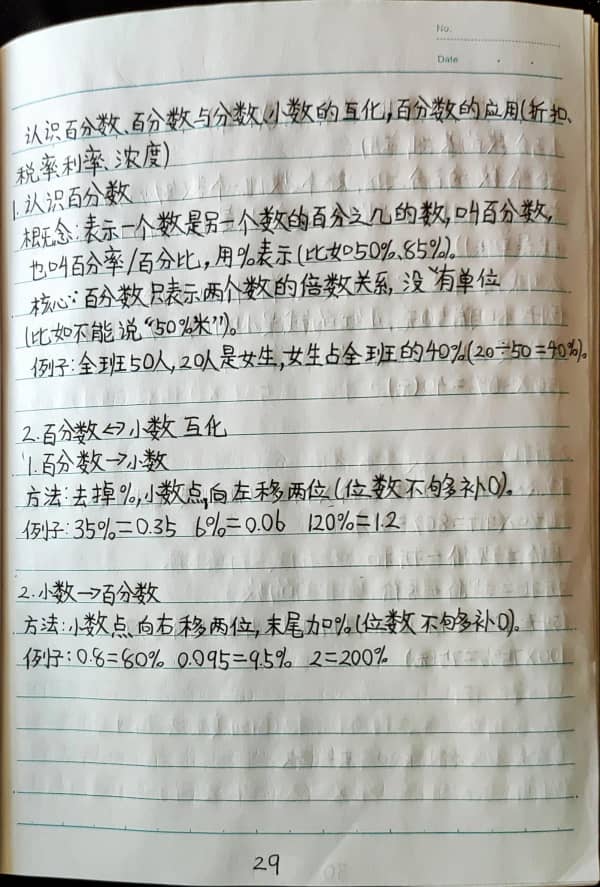 No.
Date
认识百分数、百分数与分数、小数的互化,百分数的应用(折扣、
税率、利率、浓度)
1.认识百分数
概念:表示一个数是另一个数的百分之几的数,叫百分数,
也叫百分率/百分比,用%表示(比如50%、85%)。
核心:百分数只表示两个数的倍数关系,没有单位
(比如不能说“50%米”)。
例子:全班50人,20人是女生,女生占全班的40%(20÷50=40%)。
2.百分数↔小数 互化
1.百分数→小数
方法:去掉%,小数点向左移两位(位数不够多补0)。
例子:35%=0.35 6%=0.06 120%=1.2
2.小数→百分数
方法:小数点向右移两位,末尾加%(位数不够多补0)。
例子:0.8=80% 0.095=9.5% 2=200%
29